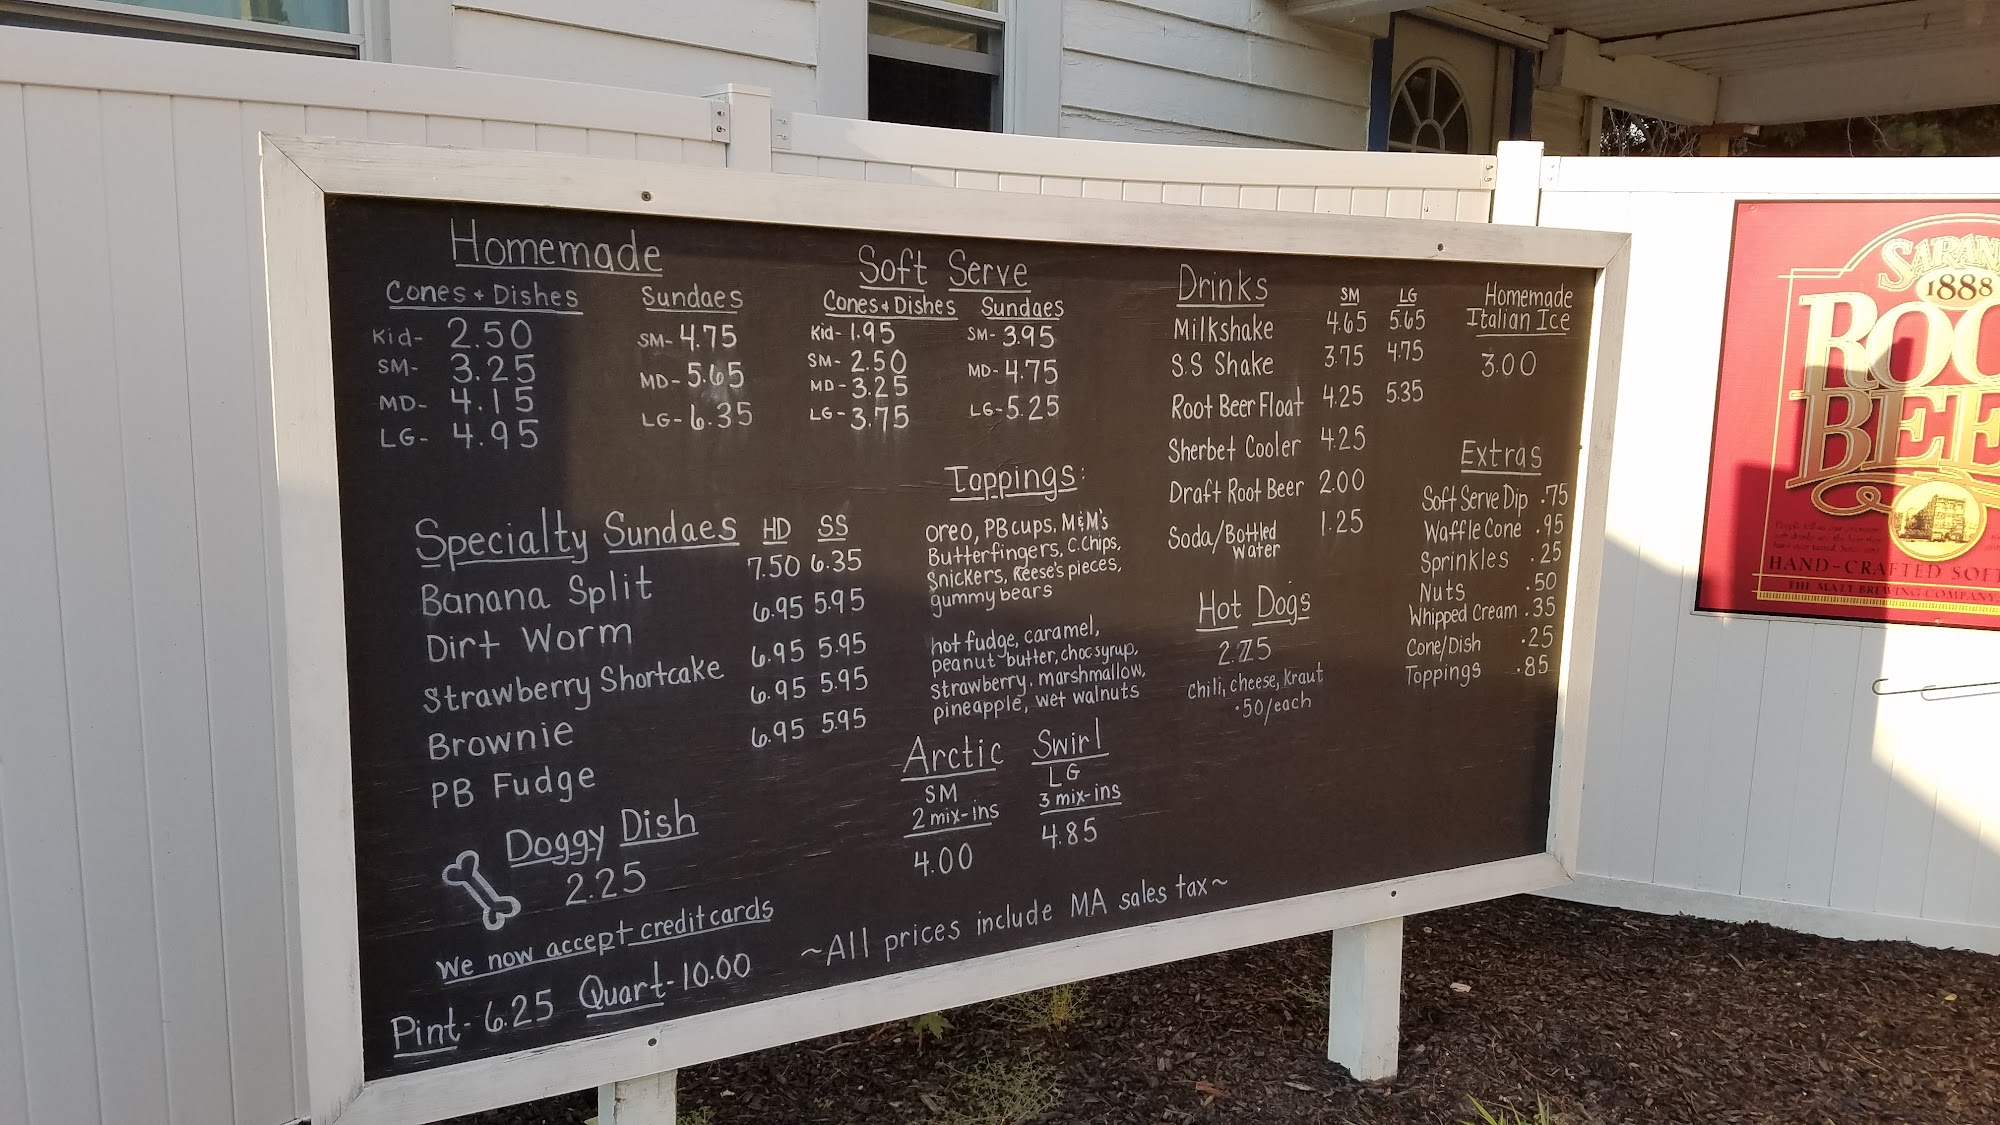 Homemade
Cones + Dishes
Kid- 2.50
SM- 3.25
MD- 4.15
LG- 4.95
Sundaes
SM- 4.75
MD- 5.65
LG- 6.35
Soft Serve
Cones + Dishes
Kid- 1.95
SM- 2.50
MD- 3.25
LG- 3.75
Sundaes
SM- 3.95
MD- 4.75
LG- 5.25
Drinks SM LG
Milkshake 4.65 5.65
S.S Shake 3.75 4.75
Root Beer Float 4.25 5.35
Sherbet Cooler 4.25
Draft Root Beer 2.00
Soda/Bottled 1.25
Water
Homemade
Italian Ice
3.00
Specialty Sundaes HD SS
Banana Split 7.50 6.35
Dirt Worm 6.95 5.95
Strawberry Shortcake 6.95 5.95
Brownie 6.95 5.95
PB Fudge 6.95 5.95
Toppings:
oreo, PB cups, M&M's
Butterfingers, C.Chips,
Snickers, Reese's pieces,
gummy bears
hot fudge, caramel,
peanut butter, choc syrup,
strawberry, marshmallow,
pineapple, wet walnuts
Hot Dogs
2.75
Chili, cheese, Kraut
.50/each
Extras
Soft Serve Dip .75
Waffle Cone .95
Sprinkles .25
Nuts .50
Whipped Cream .35
Cone/Dish .25
Toppings .85
Arctic Swirl
SM
2 mix-ins
4.00
LG
3 mix-ins
4.85
Doggy Dish
2.25
We now accept credit cards
Pint- 6.25 Quart- 10.00
~All prices include MA sales tax~
SARAN
1888
ROO
BEE
HAND-CRAFTED SOF
THE MATT BREWING COMPANY